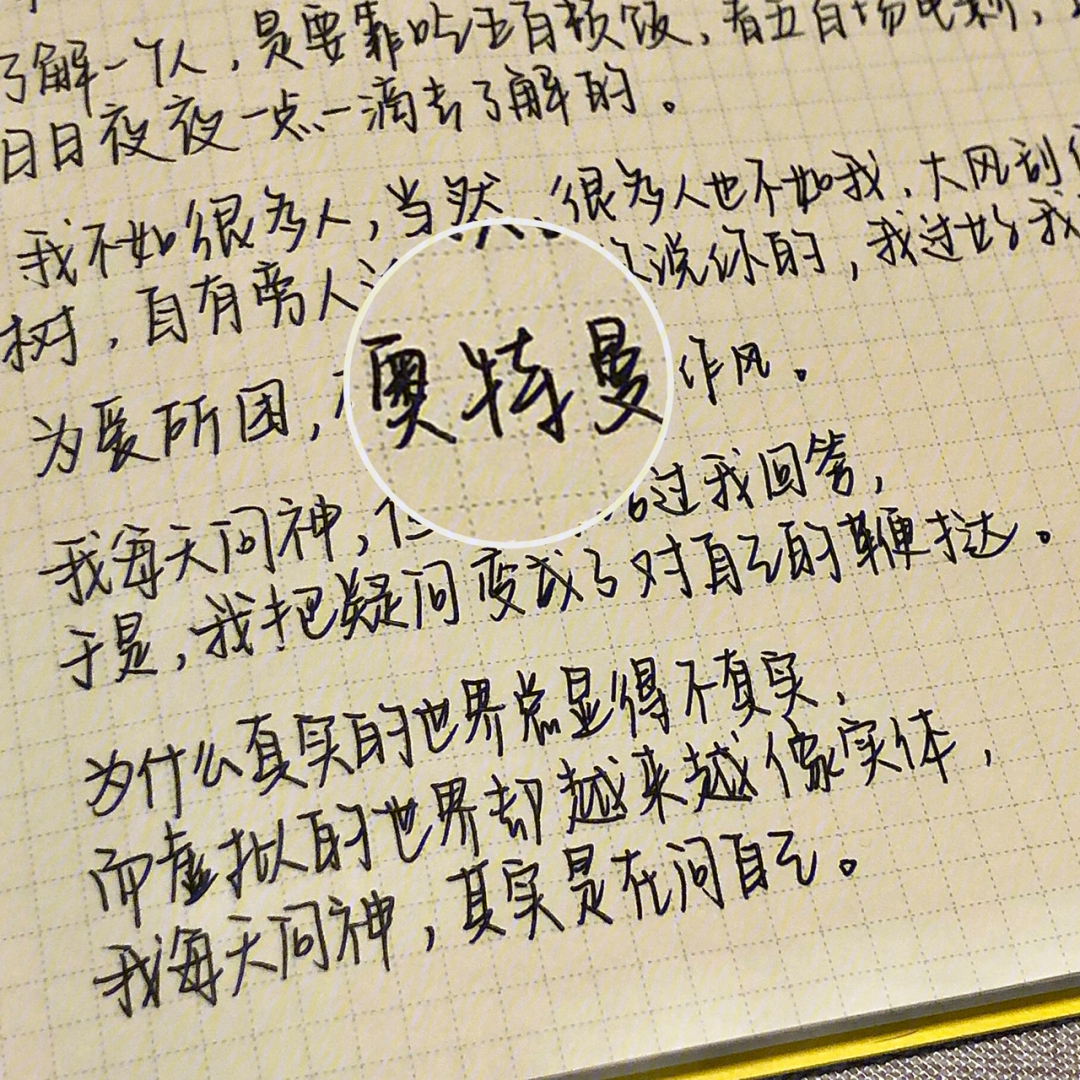 了解一个人，是要靠吃五百顿饭，看五百场电影，
日日夜夜一点一滴去了解的。
我不如很多人，当然，很多人也不如我，大风刮
树，自有旁人 说你的，我过好我
奥特曼
为爱所困， 作风。
我每天问神， 过我回答，
于是，我把疑问变成了对自己的鞭挞。
为什么真实的世界总显得不真实，
而虚拟的世界却越来越像实体，
我每天问神，其实是在问自己。